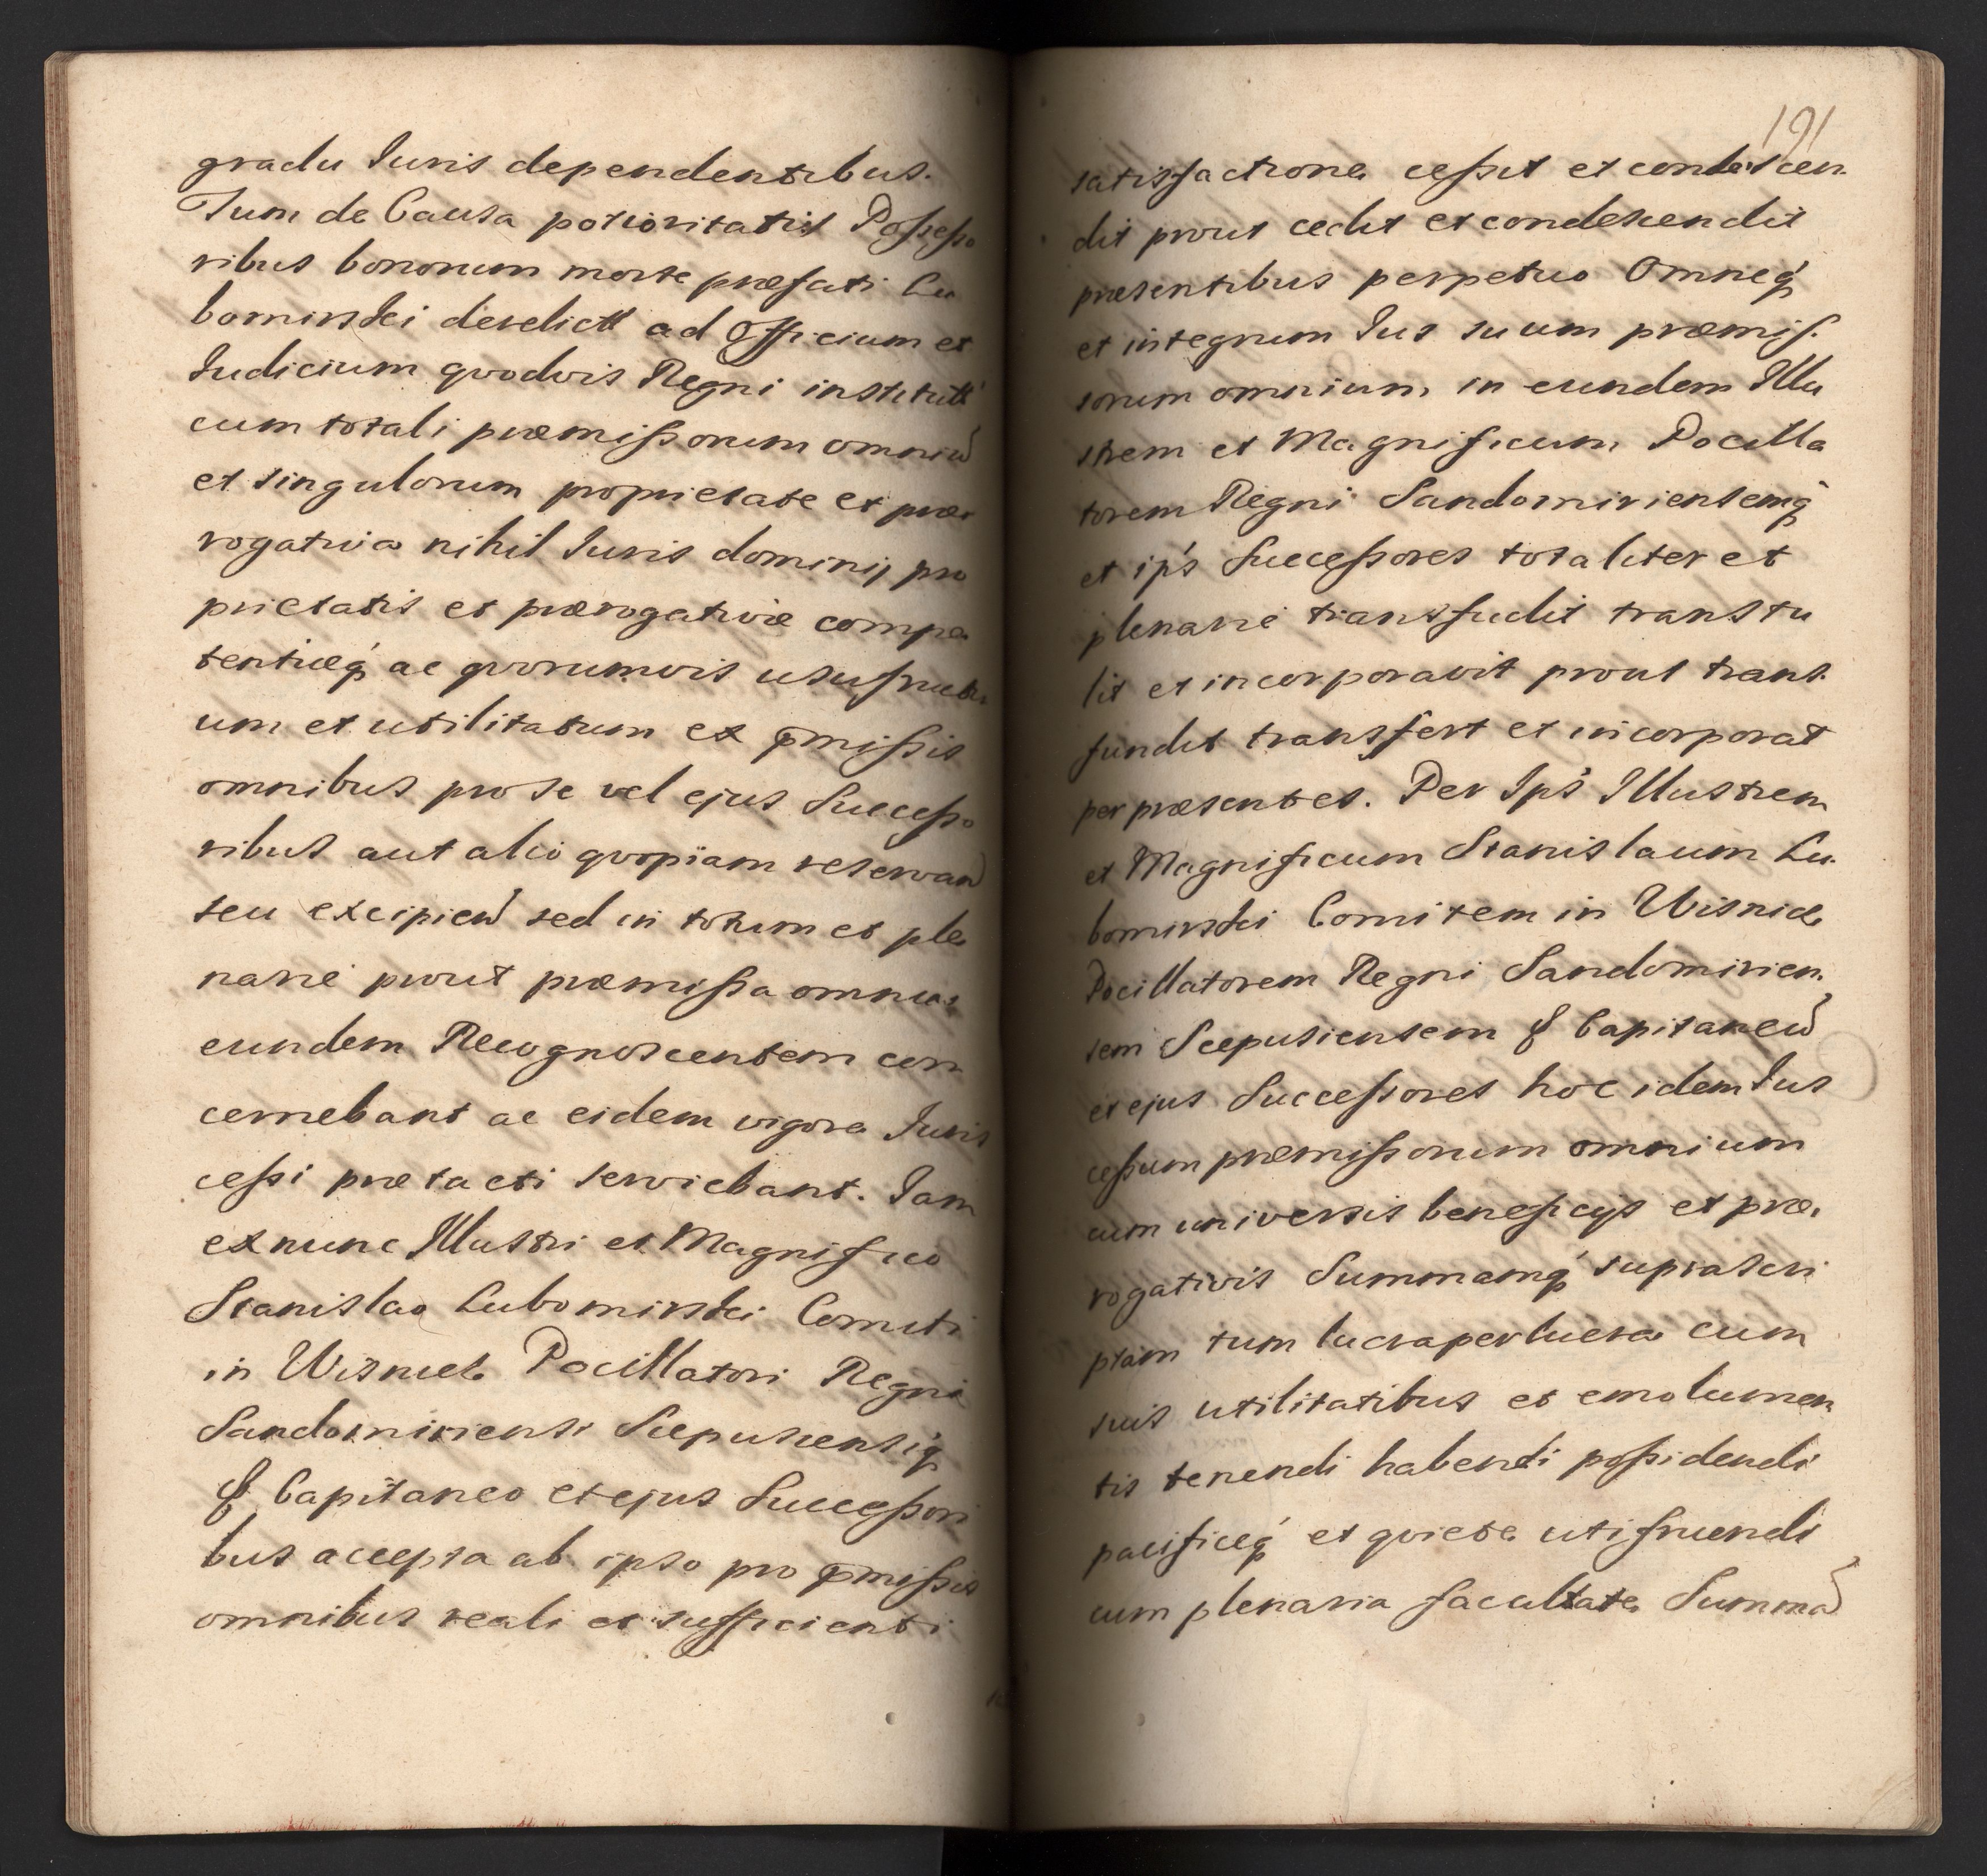 gradu Iuris dependentibus.
Tum de Causa potioritatis Possesso
ribus bonorum morte præfati Lu
bomirski derelictt ad Officium et
Iudicium qvodvis Regni institutt
cum totali præmissorum omniu
et singulorum proprietate et præ
rogativa nihil Iuris dominij pro
prietatis et prærogativæ compe
tentiæq ac qvorumvis usufructu
um et utilitatum ex pmissis
omnibus pro se vel ejus Successo
ribus aut alio qvopiam reservan
seu excipien sed in totum et ple
narie prout præmissa omnia
eundem Recognoscentem con
cernebant ac eidem vigore Iuris
cessi prætacti serviebant. Iam
ex nunc Illustri et Magnifico
Stanislao Lubomirski Comiti
in Wisnicz Pocillatori Regni
Sandomiriensi Scepusiensiq
& Capitaneo et ejus Successori
bus accepta ab ipso pro pmissis
omnibus reali et sufficienti
191
satisfactione cessit et condescen
dit prout cedit et condescendit
præsentibus perpetuo Omneq
et integrum Ius suum præmis
sorum omnium in eundem Illu
strem et Magnificum Pocilla
torem Regni Sandomiriensemq
et ips Successores totaliter et
plenarie transfudit transtu
lit et incorporavit prout trans
fundit transfert et incorporat
per præsentes. Per Ips Illustrem
et Magnificum Stanislaum Lu
bomirski Comitem in Wisnicz
Pocillatorem Regni Sandomirien
sem Scepusiensem & Capitaneu
et ejus Successores hoc idem Ius
cessum præmissorum omnium
cum universis beneficijs et præ
rogativis Summamq suprascri
ptam tum lucra perlucra cum
suis utilitatibus et emolumen
tis tenendi habendi possidendi
pacificeq et qviete utifruendi
cum plenaria facultate Summa